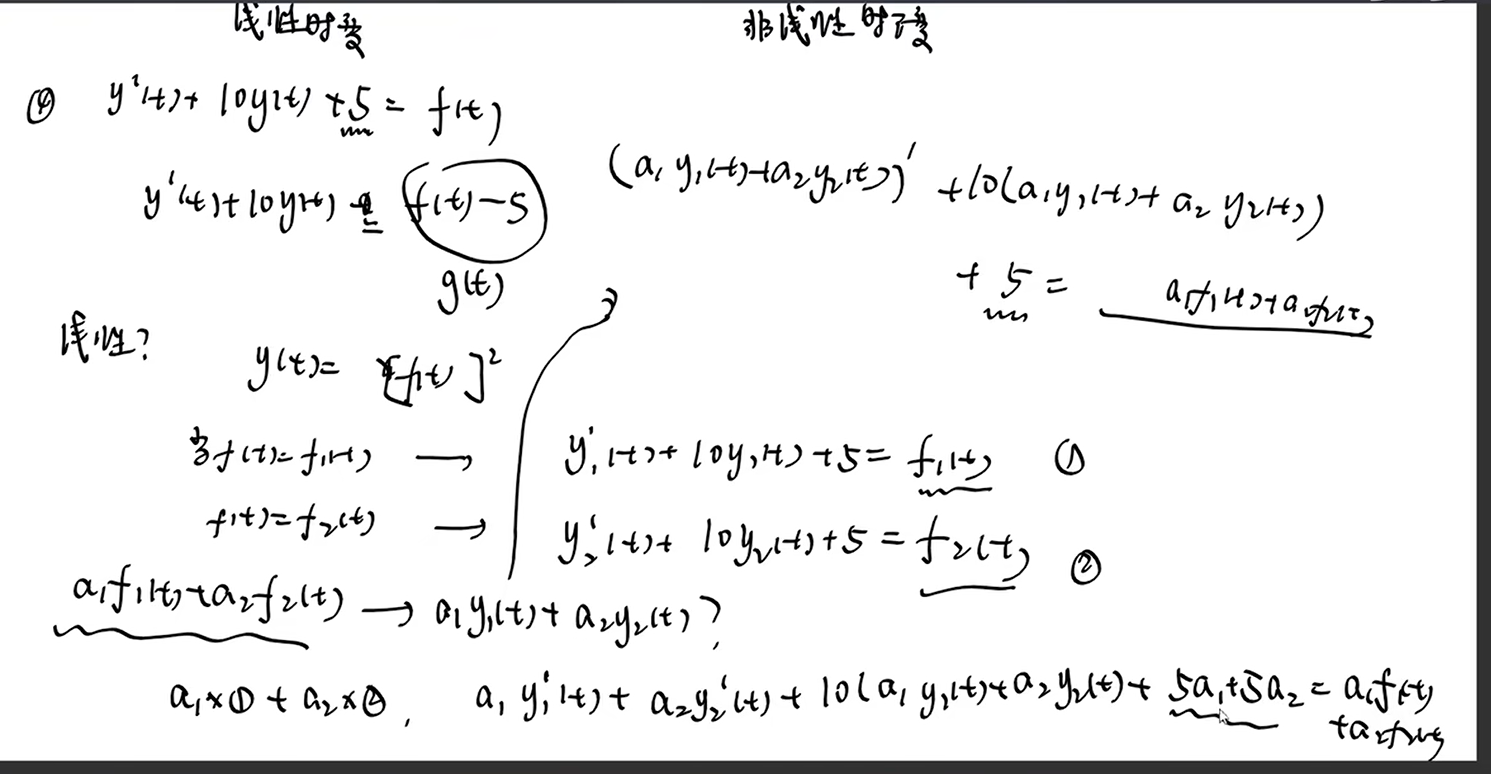 线性时变
非线性时不变
④ y'(t)+10y(t)+5=f(t)
y'(t)+10y(t)=f(t)-5
g(t)
(a₁y₁(t)+a₂y₂(t))'+10(a₁y₁(t)+a₂y₂(t))
+5= a₁f₁(t)+a₂f₂(t)
线性?
y(t)=[f(t)]²
当f(t)=f₁(t) → y₁'(t)+10y₁(t)+5=f₁(t) ①
f(t)=f₂(t) → y₂'(t)+10y₂(t)+5=f₂(t) ②
a₁f₁(t)+a₂f₂(t) → a₁y₁(t)+a₂y₂(t)?
a₁×①+a₂×②, a₁y₁'(t)+a₂y₂'(t)+10(a₁y₁(t)+a₂y₂(t)+5a₁+5a₂=a₁f(t)
+a₂f₂(t)